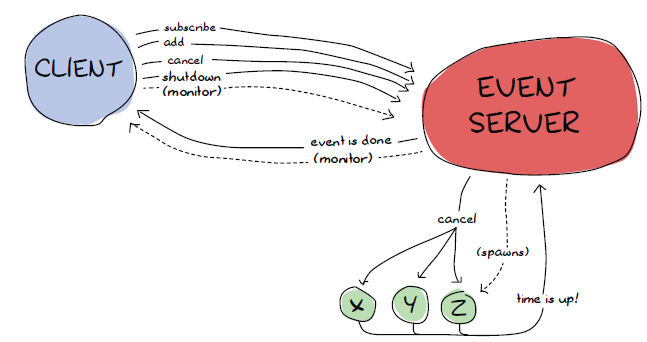 subscribe
add
cancel
shutdown
(monitor)
CLIENT
EVENT
SERVER
event is done
(monitor)
cancel
(spawns)
time is up!
X
Y
Z